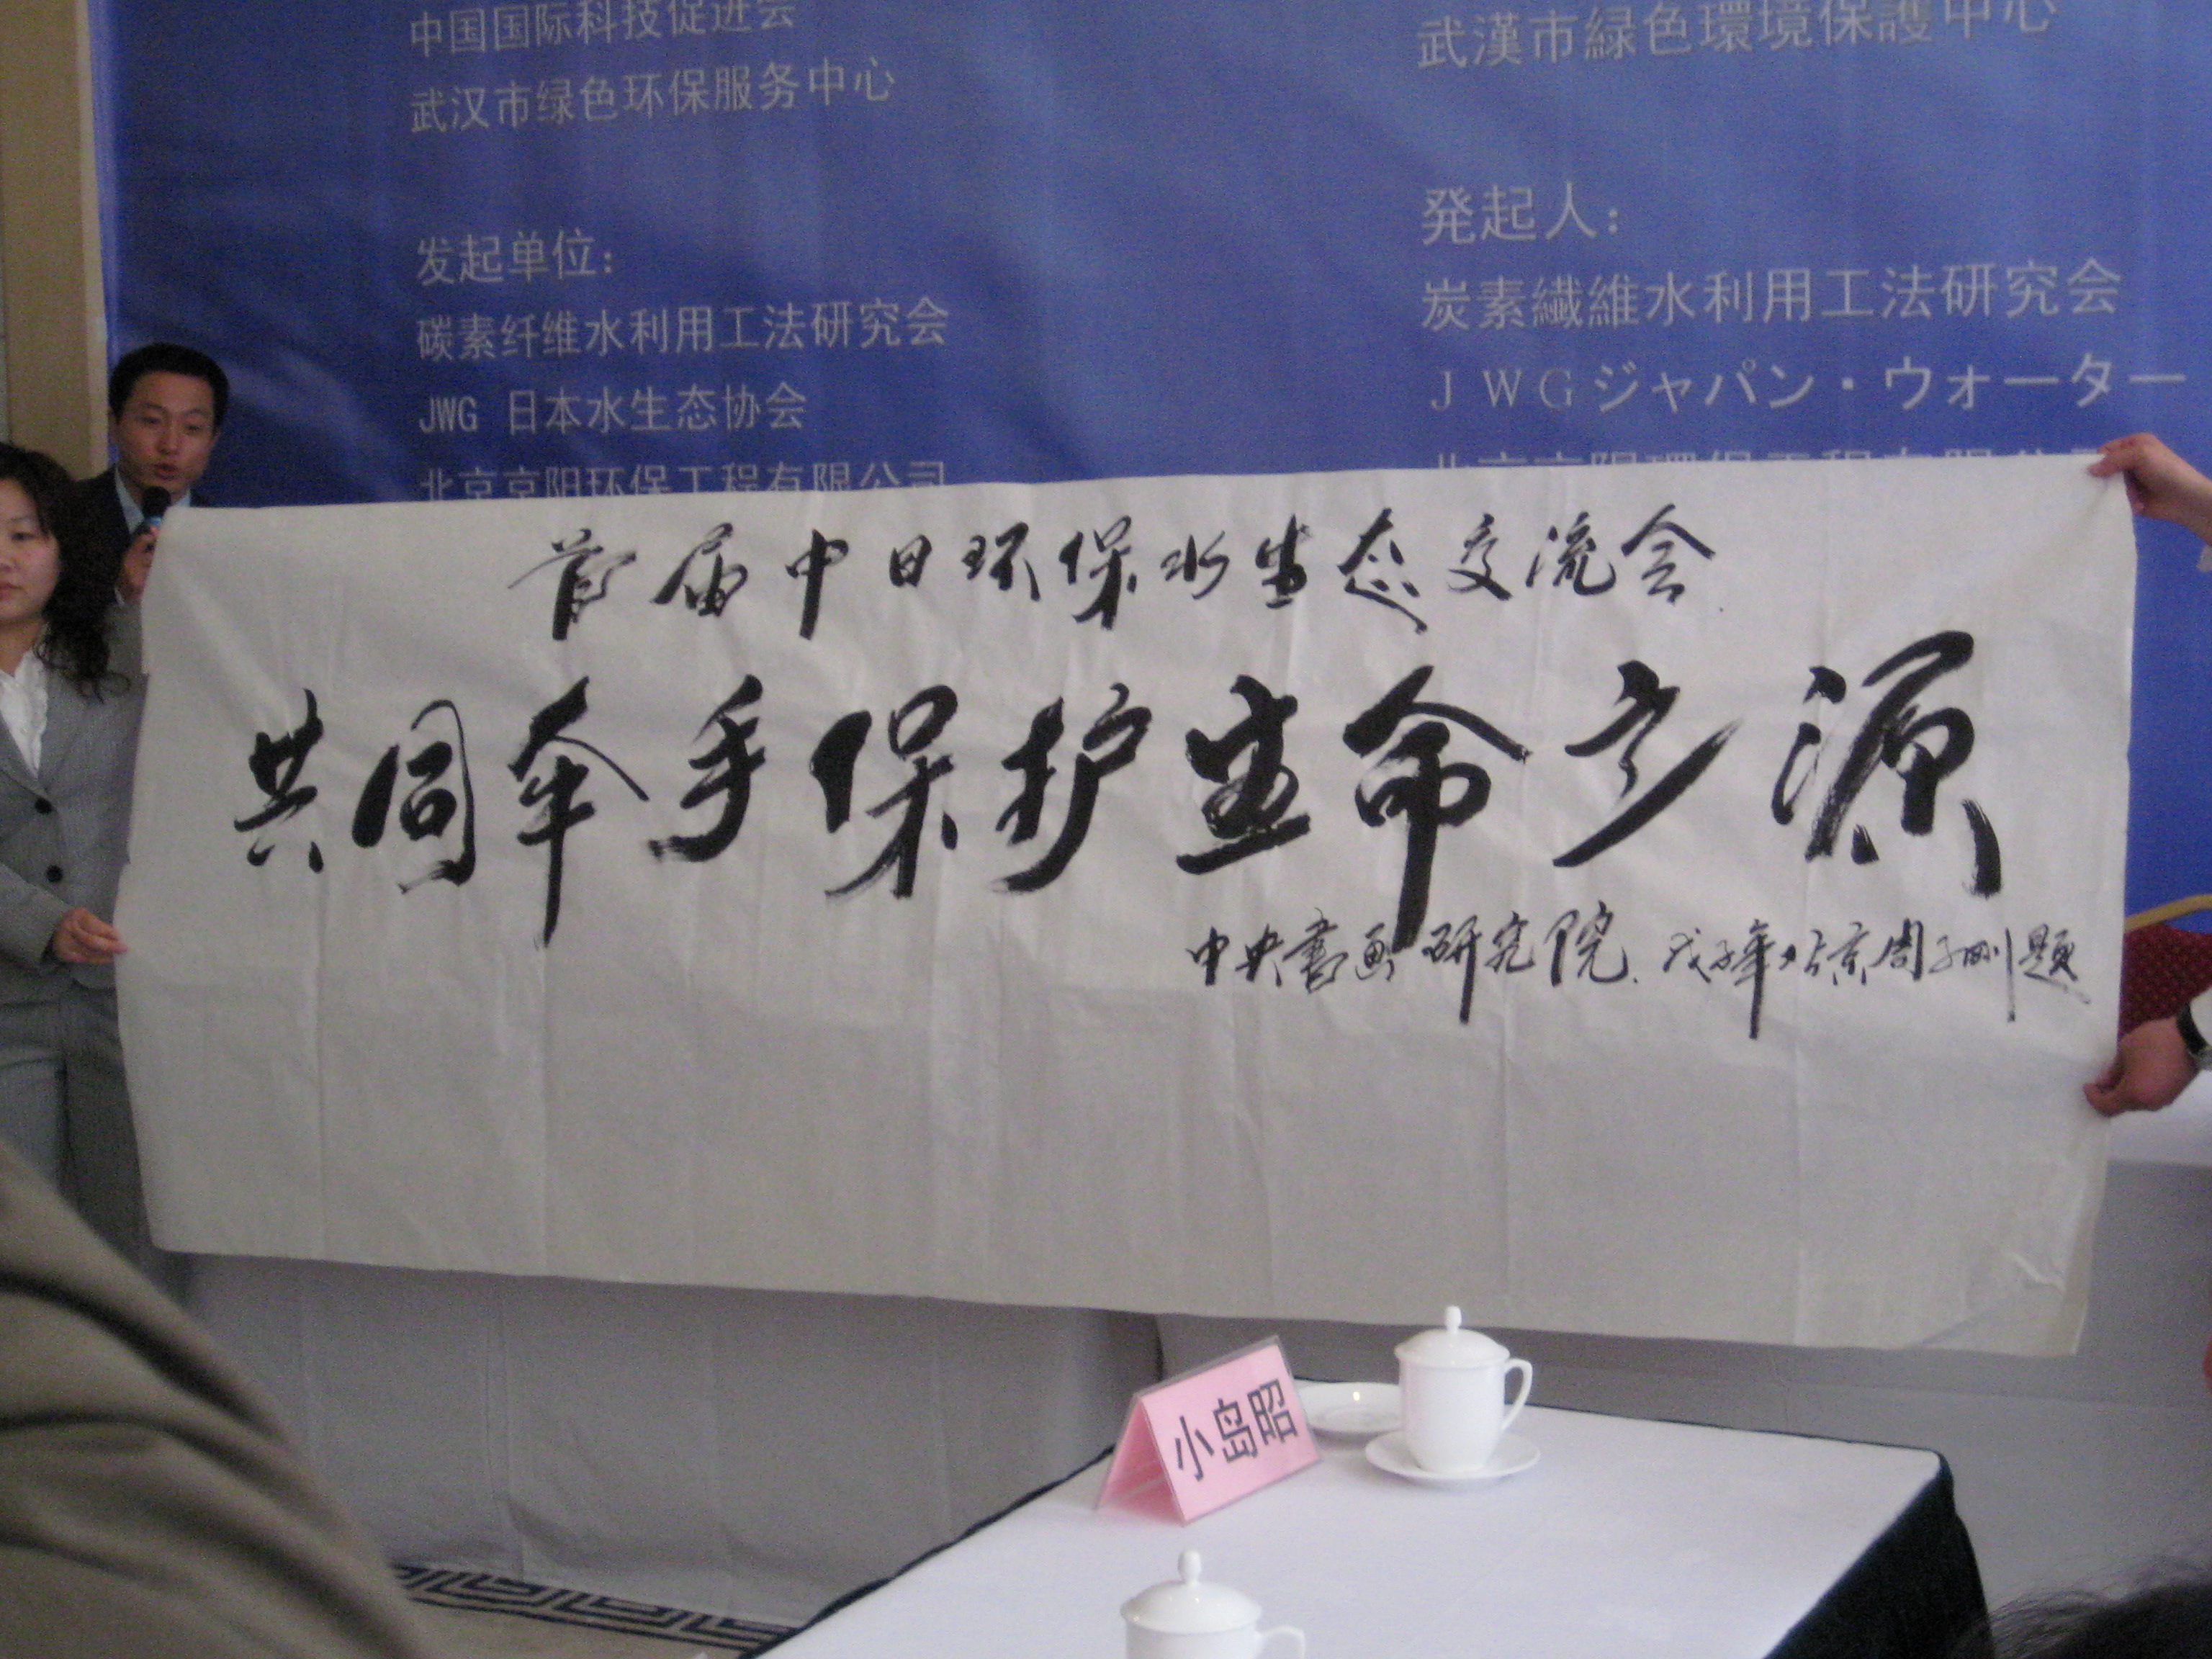 中国国际科技促进会
武汉市绿色环保服务中心
发起单位:
碳素纤维水利用工法研究会
JWG 日本水生态协会
北京京阳环保工程有限公司
武漢市緑色環境保護中心
発起人:
炭素繊維水利用工法研究会
JWGジャパン・ウォーター
首届中日环保水生态交流会
共同牵手保护生命之源
中央书画研究院 戊子年 京周子刚题
小岛昭